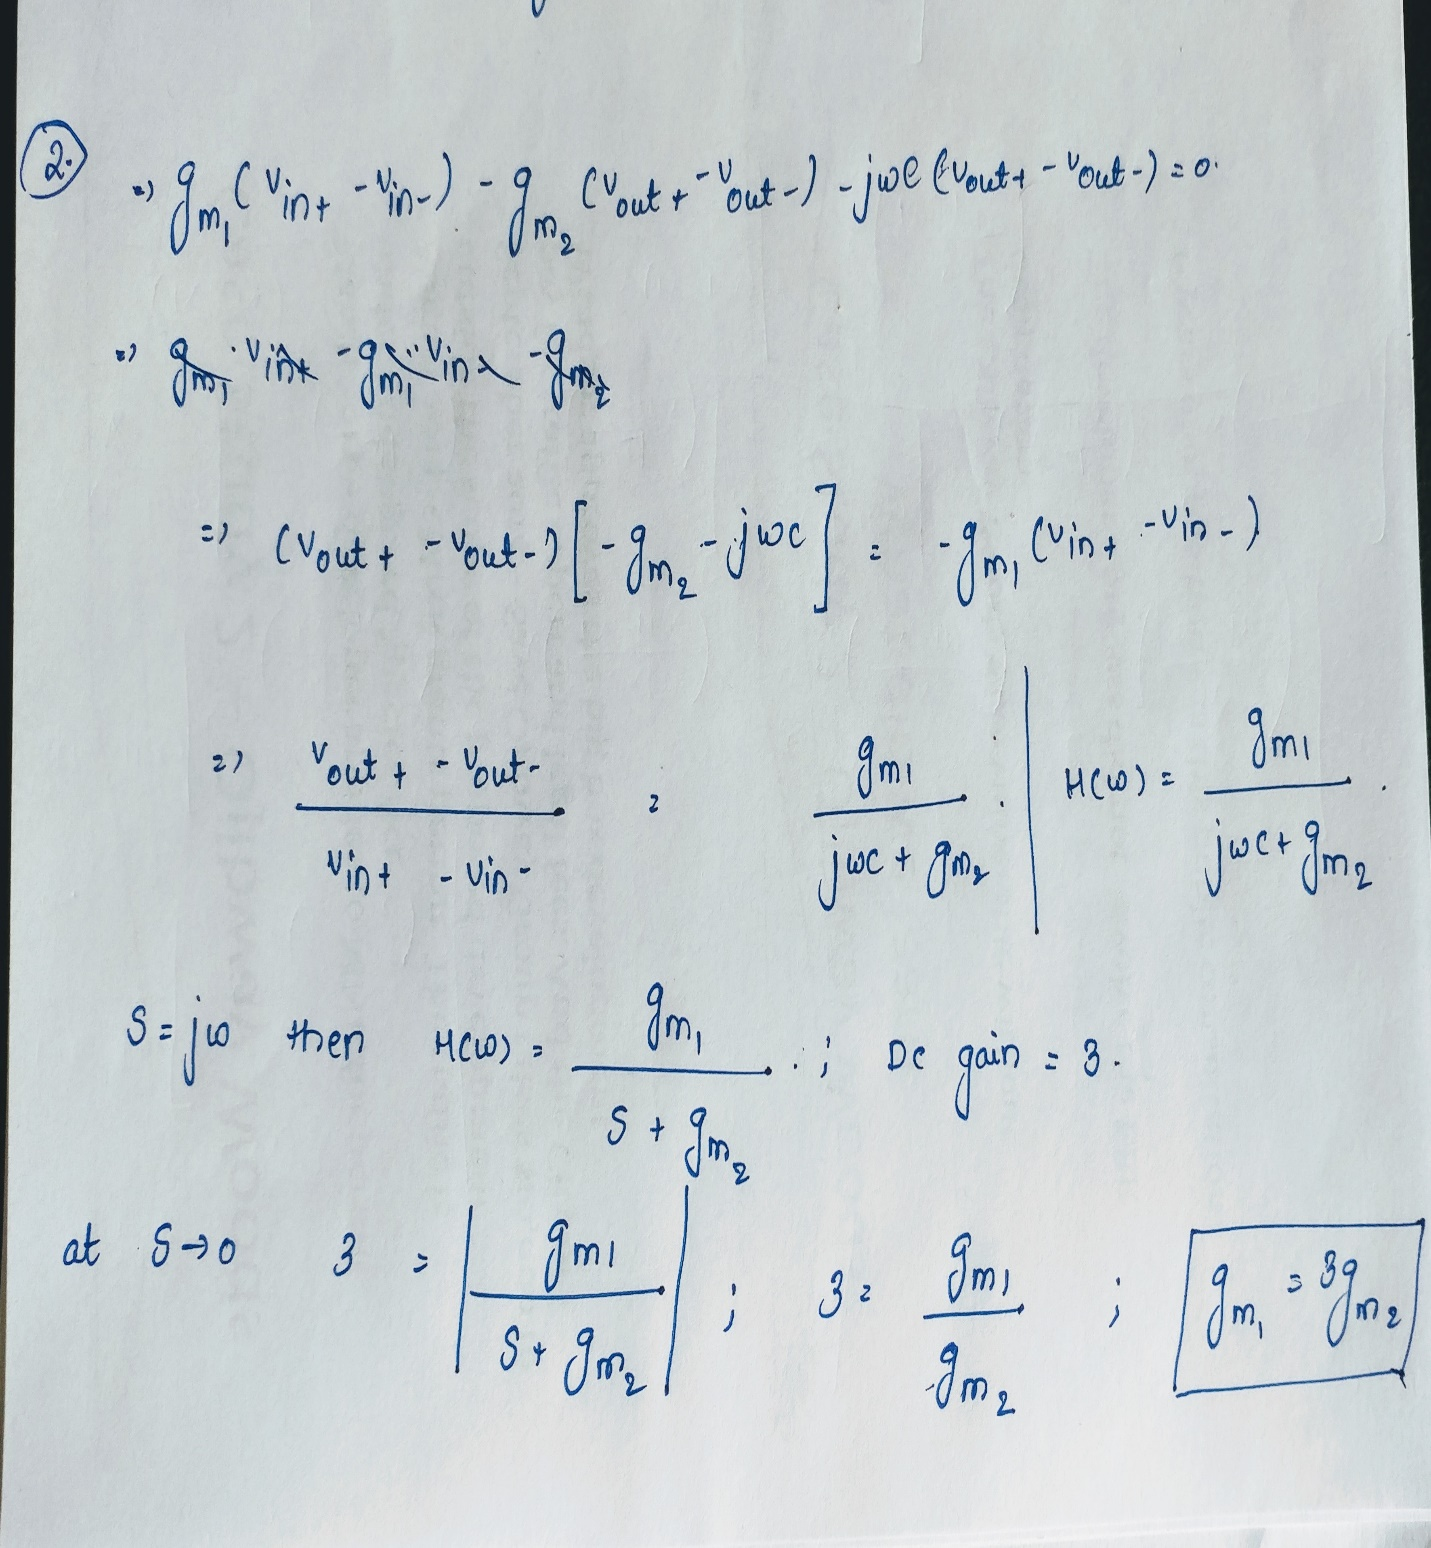 2.
=) gm1 (Vin+ - Vin-) - gm2 (Vout+ - Vout-) - jωc (Vout+ - Vout-) = 0.
=) gm1 Vin+ - gm1 Vin- - gm2
=) (Vout+ - Vout-) [-gm2 - jωc] = -gm1 (Vin+ - Vin-)
=) (Vout+ - Vout-) / (Vin+ - Vin-) = gm1 / (jωc + gm2) . | H(ω) = gm1 / (jωc + gm2) .
S = jω then H(ω) = gm1 / (S + gm2) . ; DC gain = 3.
at S→0 3 = | gm1 / (S + gm2) | ; 3 = gm1 / gm2 ; gm1 = 3gm2